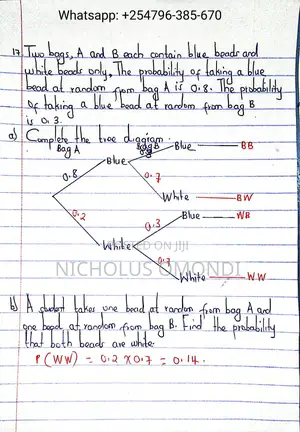 Whatsapp: +254796-385-670
17 Two bags, A and B each contain blue beads and
white beads only. The probability of taking a blue
bead at random from bag A is 0.8. The probability
of taking a blue bead at random from bag B
is 0.3.
a) Complete the tree diagram.
Bag A Bag B
Blue Blue BB
0.8 0.7
White BW
0.2 0.3 Blue WB
White 0.7
ON JIJI
NICHOLUS OMONDI
White WW
b) A student takes one bead at random from bag A and
one bead at random from bag B. Find the probability
that both beads are white.
P(WW) = 0.2 x 0.7 = 0.14.